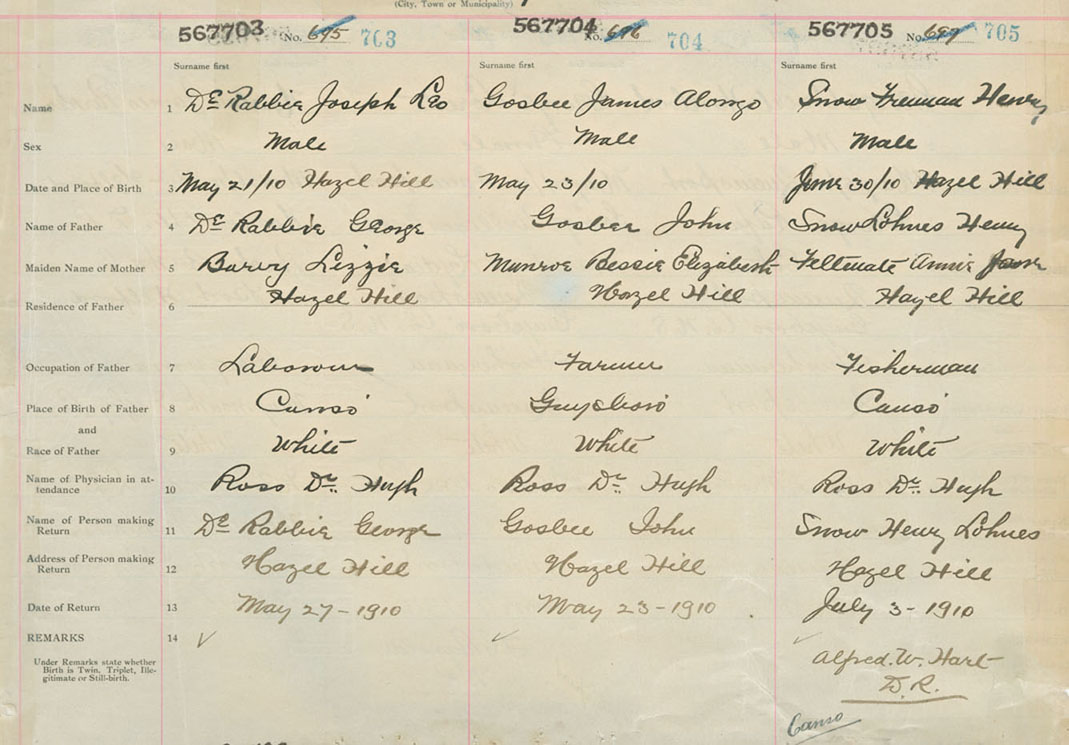 (City, Town or Municipality)
567703 No. 695 703 567704 No. 696 704 567705 No. 697 705
Surname first Surname first Surname first
Name 1 De Rabbie Joseph Leo Gosbee James Alonzo Snow Freeman Henry
Sex 2 Male Male Male
Date and Place of Birth 3 May 21/10 Hazel Hill May 23/10 June 30/10 Hazel Hill
Name of Father 4 De Rabbie George Gosbee John Snow Lohnes Henry
Maiden Name of Mother 5 Barry Lizzie Munroe Bessie Elizabeth Feltmate Annie Jane
Residence of Father 6 Hazel Hill Hazel Hill Hazel Hill
Occupation of Father 7 Labourer Farmer Fisherman
Place of Birth of Father 8 Canso Guysboro Canso
and
Race of Father 9 White White White
Name of Physician in at-
tendance 10 Ross Dr. Hugh Ross Dr. Hugh Ross Dr. Hugh
Name of Person making
Return 11 De Rabbie George Gosbee John Snow Henry Lohnes
Address of Person making
Return 12 Hazel Hill Hazel Hill Hazel Hill
Date of Return 13 May 27-1910 May 23-1910 July 3-1910
REMARKS 14
Under Remarks state whether
Birth is Twin, Triplet, Ille-
gitimate or Still-birth.
Alfred. W. Hart
D.R.
Canso